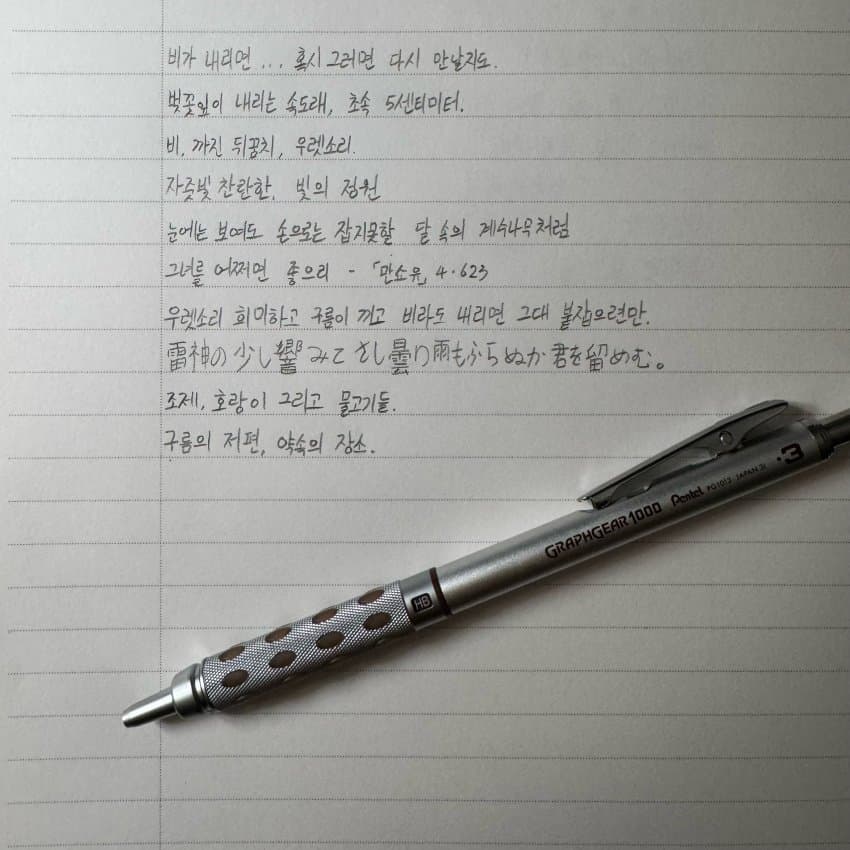 비가 내리면 ... 혹시 그러면 다시 만날지도.
벚꽃잎이 내리는 속도래, 초속 5센티미터.
비, 까진 뒤꿈치, 우렛소리.
자줏빛 찬란한, 빛의 정원
눈에는 보여도 손으로는 잡지못할 달 속의 계수나무처럼
그녀를 어쩌면 좋으리 - 「만요유」 4·623
우렛소리 희미하고 구름이 끼고 비라도 내리면 그대 붙잡으련만.
雷神の 少し響みて さし曇り雨もふらぬか 君を留めむ。
조제, 호랑이 그리고 물고기들.
구름의 저편, 약속의 장소.
.3
GRAPHGEAR 1000 Pentel PG1013 JAPAN
HB